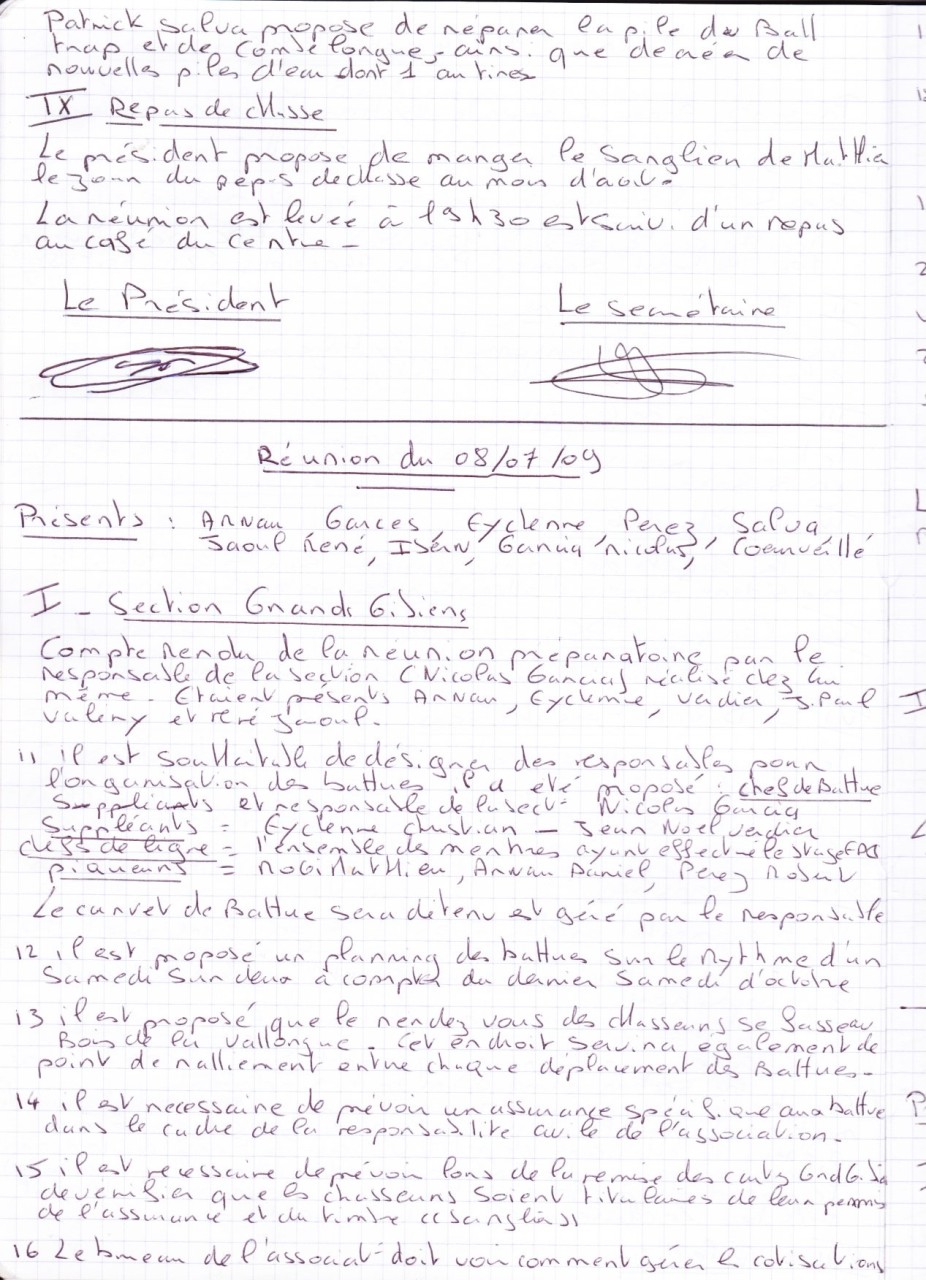 Patrick Salva propose de réparer la pile du Ball
trap et de Combelongue, ainsi que de créer de
nouvelles piles d'eau dont 1 au tires
IX Repas de chasse
Le président propose de manger le sanglier de Matthia
le jour du repas de chasse au mois d'août.
La réunion est levée à 19h30 et suivi d'un repas
au café du centre -
Le Président
Le secrétaire
Réunion du 08/07/09
Présents : Arnau Garces, Eyclenne, Perez, Salva,
Jaoul René, Isern, Garcia nicolas,
I - Section Grands Gibiers
Compte rendu de la réunion préparatoire par le
responsable de la section (Nicolas Garcia) réalisé chez lui
même. Etaient présents Arnau, Eyclenne, Verdier, J. Paul
Valery et rené Jaoul.
11 il est souhaitable de désigner des responsables pour
l'organisation des battues il a été proposé : chef de Battue
et responsable de la sect° Nicolas Garcia
Suppléants = Eyclenne christian - Jean Noel Verdier
chefs de ligne = l'ensemble des membres ayant effectué le stage FDC
piqueurs = Matthieu, Arnau Daniel, Perez Robert
Le carnet de Battue sera détenu et géré par le responsable
12 il est proposé un planning des battues sur le rythme d'un
Samedi sur deux à compter du dernier Samedi d'octobre
13 il est proposé que le rendez vous des chasseurs se fasse au
Bois de la Vallongue. Cet endroit servira également de
point de ralliement entre chaque déplacement des Battues.-
14 il est necessaire de prévoir un assurance spécifique aux battue
dans le cadre de la responsabilité civile de l'association.
15 il est necessaire de prévoir lors de la remise des cartes Grd Gibi
de vérifier que les chasseurs soient titulaires de leur permis
de l'assurance et du timbre ((sanglier))
16 Le bureau de l'associat° doit voir comment gérer les cotisations